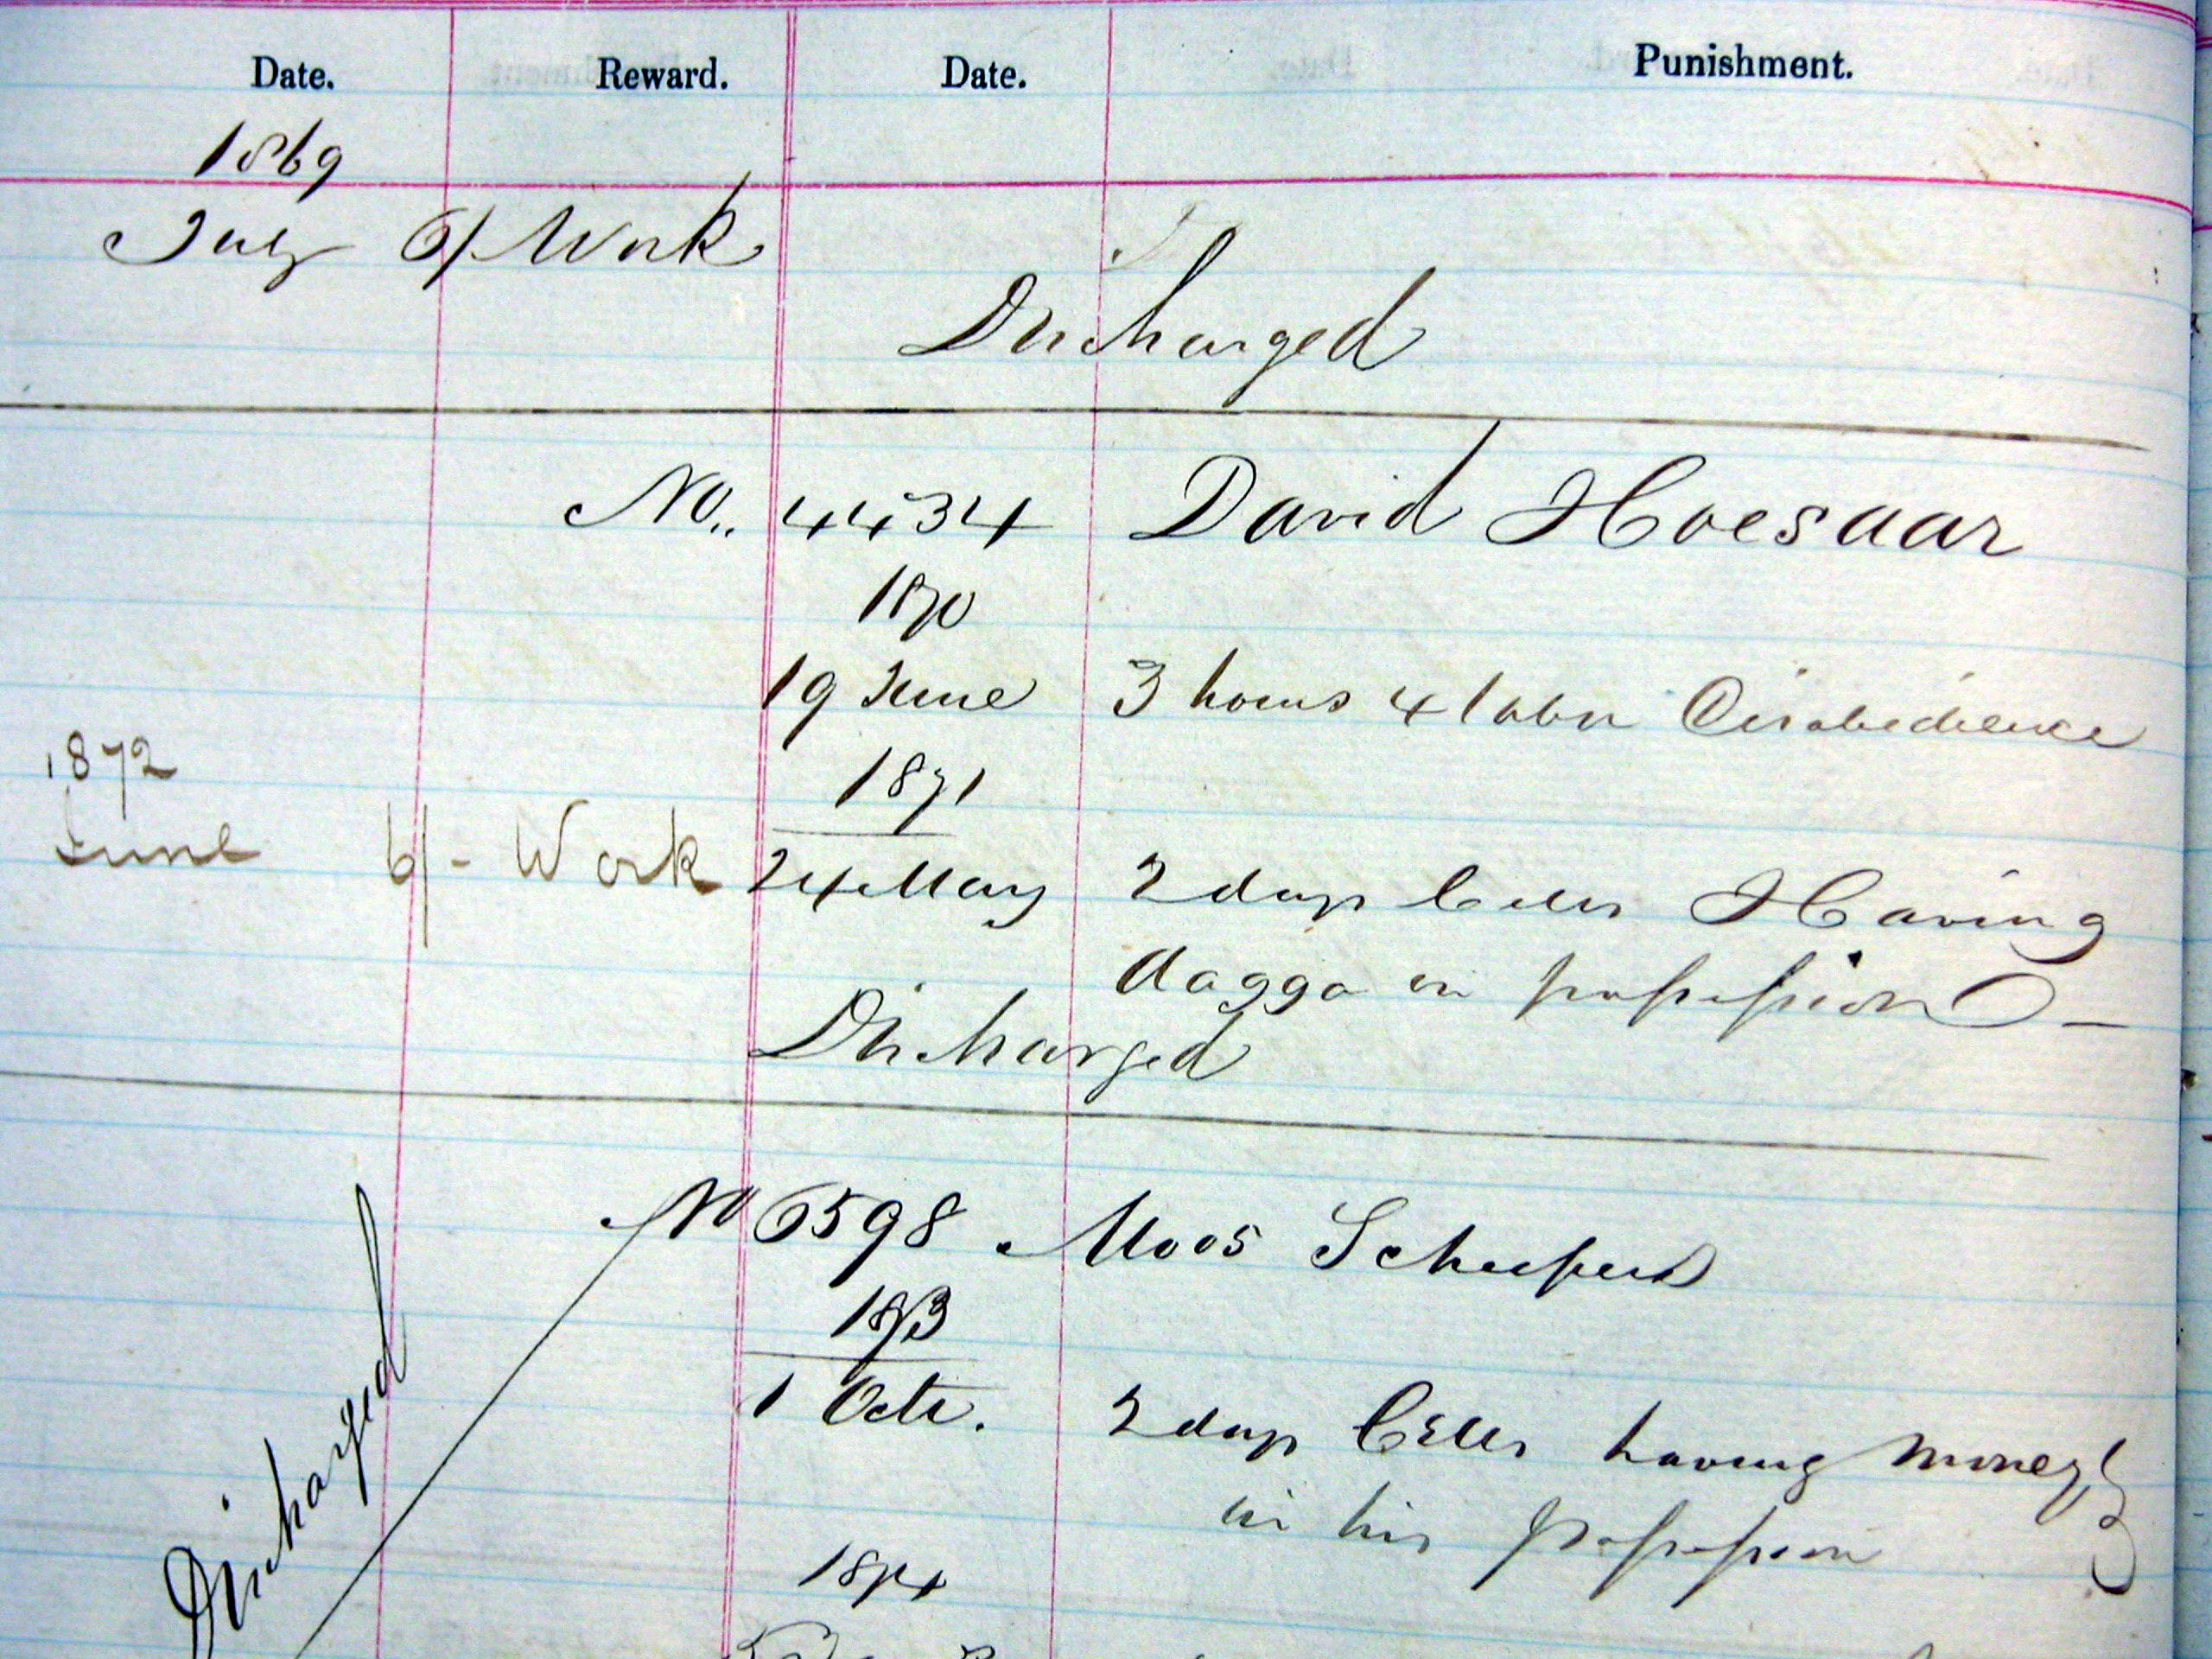 Date. Reward. Date. Punishment.
1869
July 6/ Work
Discharged
No. 4434 David Hoesaar
1870
19 June 3 hours & labor Disobedience
1871
1872
June 6/- Work 24 May 2 days Cells Having
dagga in possession
Discharged
No 6598 Moos Scheepers
1873
1 Octr. 2 days Cells having money
in his possession
Discharged
1874